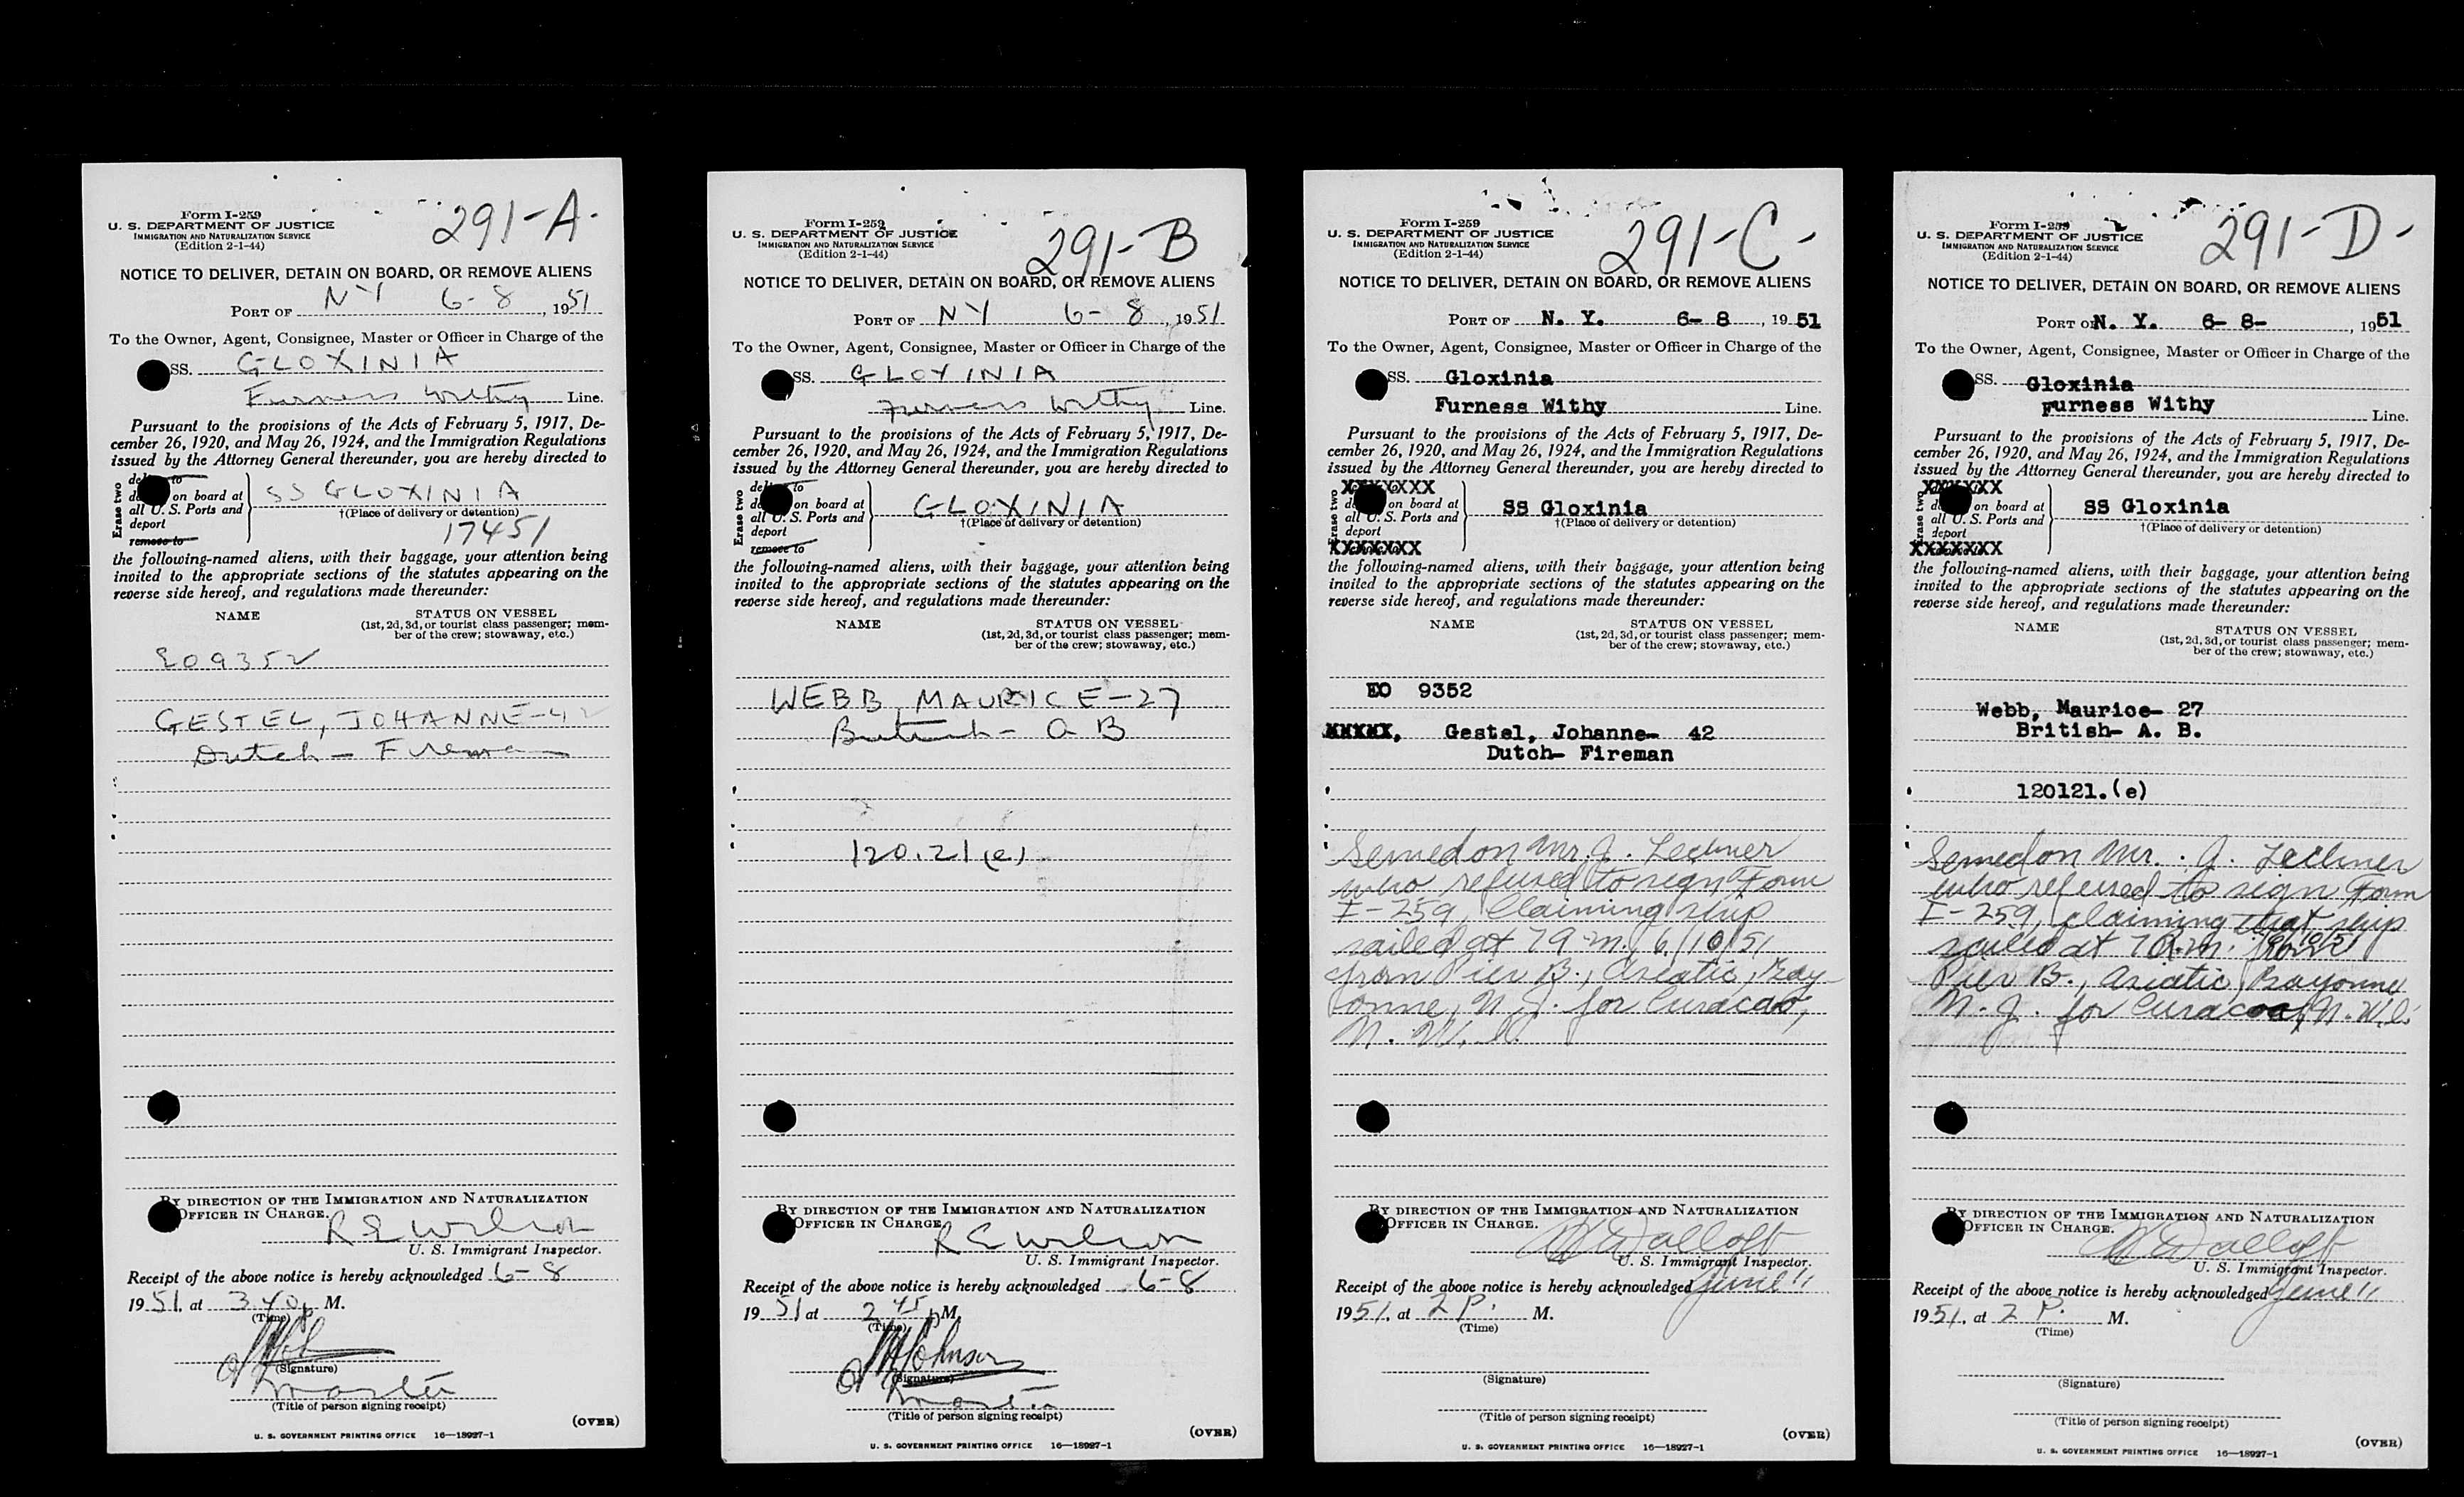 Form I-259
U. S. DEPARTMENT OF JUSTICE
IMMIGRATION AND NATURALIZATION SERVICE
(Edition 2-1-44)
291-A-
NOTICE TO DELIVER, DETAIN ON BOARD, OR REMOVE ALIENS
PORT OF NY 6-8, 1951
To the Owner, Agent, Consignee, Master or Officer in Charge of the
SS. GLOXINIA
Furness Withy Line.
Pursuant to the provisions of the Acts of February 5, 1917, De-
cember 26, 1920, and May 26, 1924, and the Immigration Regulations
issued by the Attorney General thereunder, you are hereby directed to
Erase two
to
on board at
all U. S. Ports and
deport
remove to
SS GLOXINIA
†(Place of delivery or detention)
17451
the following-named aliens, with their baggage, your attention being
invited to the appropriate sections of the statutes appearing on the
reverse side hereof, and regulations made thereunder:
NAME
STATUS ON VESSEL
(1st, 2d, 3d, or tourist class passenger; mem-
ber of the crew; stowaway, etc.)
EO9352
GESTEL, JOHANNE-42
Dutch - Fireman
BY DIRECTION OF THE IMMIGRATION AND NATURALIZATION
OFFICER IN CHARGE.
R E Wilson
U. S. Immigrant Inspector.
Receipt of the above notice is hereby acknowledged 6-8
1951, at 3 40 p M.
(Time)
(Signature)
Master
(Title of person signing receipt)
(OVER)
U. S. GOVERNMENT PRINTING OFFICE 16—18927-1
Form I-259
U. S. DEPARTMENT OF JUSTICE
IMMIGRATION AND NATURALIZATION SERVICE
(Edition 2-1-44)
291-B
NOTICE TO DELIVER, DETAIN ON BOARD, OR REMOVE ALIENS
PORT OF NY 6-8, 1951
To the Owner, Agent, Consignee, Master or Officer in Charge of the
SS. GLOXINIA
Furness Withy Line.
Pursuant to the provisions of the Acts of February 5, 1917, De-
cember 26, 1920, and May 26, 1924, and the Immigration Regulations
issued by the Attorney General thereunder, you are hereby directed to
Erase two
to
on board at
all U. S. Ports and
deport
remove to
GLOXINIA
†(Place of delivery or detention)
the following-named aliens, with their baggage, your attention being
invited to the appropriate sections of the statutes appearing on the
reverse side hereof, and regulations made thereunder:
NAME
STATUS ON VESSEL
(1st, 2d, 3d, or tourist class passenger; mem-
ber of the crew; stowaway, etc.)
WEBB, MAURICE-27
British - A B
120.21(e)
BY DIRECTION OF THE IMMIGRATION AND NATURALIZATION
OFFICER IN CHARGE.
R E Wilson
U. S. Immigrant Inspector.
Receipt of the above notice is hereby acknowledged 6-8
1951 at 2 45 p M.
(Time)
Johnson
(Signature)
Master
(Title of person signing receipt)
(OVER)
U. S. GOVERNMENT PRINTING OFFICE 16—18927-1
Form I-259
U. S. DEPARTMENT OF JUSTICE
IMMIGRATION AND NATURALIZATION SERVICE
(Edition 2-1-44)
291-C-
NOTICE TO DELIVER, DETAIN ON BOARD, OR REMOVE ALIENS
PORT OF N. Y. 6- 8, 1951
To the Owner, Agent, Consignee, Master or Officer in Charge of the
SS. Gloxinia
Furness Withy Line.
Pursuant to the provisions of the Acts of February 5, 1917, De-
cember 26, 1920, and May 26, 1924, and the Immigration Regulations
issued by the Attorney General thereunder, you are hereby directed to
Erase two
XXXXXXX
on board at
all U. S. Ports and
deport
XXXXXXX
SS Gloxinia
†(Place of delivery or detention)
the following-named aliens, with their baggage, your attention being
invited to the appropriate sections of the statutes appearing on the
reverse side hereof, and regulations made thereunder:
NAME
STATUS ON VESSEL
(1st, 2d, 3d, or tourist class passenger; mem-
ber of the crew; stowaway, etc.)
EO 9352
XXXXX, Gestel, Johanne- 42
Dutch- Fireman
Served on Mr. J. Lechner
who refused to sign Form
I-259, Claiming ship
sailed at 7 A.M. 6/10/51
from Pier B., Asiatic, Bay
onne, N. J. for Curacao,
N. W. I.
BY DIRECTION OF THE IMMIGRATION AND NATURALIZATION
OFFICER IN CHARGE.
U. S. Immigrant Inspector.
Receipt of the above notice is hereby acknowledged June 11
1951, at 2 P. M.
(Time)
(Signature)
(Title of person signing receipt)
(OVER)
U. S. GOVERNMENT PRINTING OFFICE 16—18927-1
Form I-259
U. S. DEPARTMENT OF JUSTICE
IMMIGRATION AND NATURALIZATION SERVICE
(Edition 2-1-44)
291-D-
NOTICE TO DELIVER, DETAIN ON BOARD, OR REMOVE ALIENS
PORT OF N. Y. 6- 8-, 1951
To the Owner, Agent, Consignee, Master or Officer in Charge of the
SS. Gloxinia
Furness Withy Line.
Pursuant to the provisions of the Acts of February 5, 1917, De-
cember 26, 1920, and May 26, 1924, and the Immigration Regulations
issued by the Attorney General thereunder, you are hereby directed to
Erase two
XXXXXXX
on board at
all U. S. Ports and
deport
XXXXXXX
SS Gloxinia
†(Place of delivery or detention)
the following-named aliens, with their baggage, your attention being
invited to the appropriate sections of the statutes appearing on the
reverse side hereof, and regulations made thereunder:
NAME
STATUS ON VESSEL
(1st, 2d, 3d, or tourist class passenger; mem-
ber of the crew; stowaway, etc.)
Webb, Maurice- 27
British- A. B.
120121.(e)
Served on Mr. J. Lechner
who refused to sign Form
I-259, claiming that ship
sailed at 7 A.M. 6/10/51 from
Pier B., Asiatic, Bayonne
N. J. for Curacoa, N. W. I.
BY DIRECTION OF THE IMMIGRATION AND NATURALIZATION
OFFICER IN CHARGE.
U. S. Immigrant Inspector.
Receipt of the above notice is hereby acknowledged June 11
1951, at 2 P. M.
(Time)
(Signature)
(Title of person signing receipt)
(OVER)
U. S. GOVERNMENT PRINTING OFFICE 16—18927-1